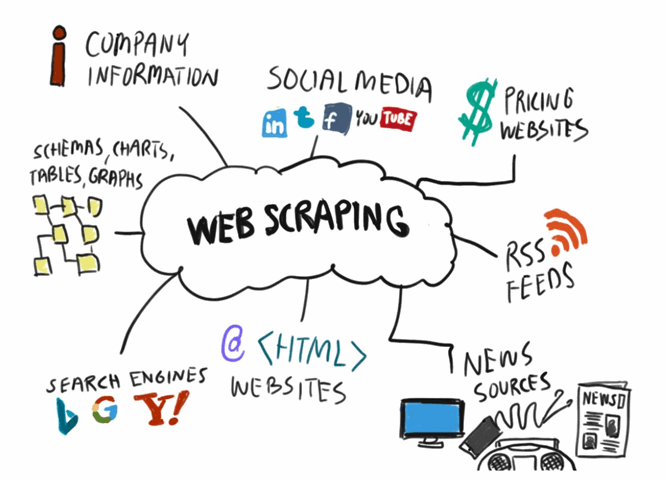 COMPANY
INFORMATION
SOCIAL MEDIA
in t f YOU TUBE
$ PRICING
WEBSITES
SCHEMAS, CHARTS,
TABLES, GRAPHS
WEB SCRAPING
RSS
FEEDS
@ <HTML>
WEBSITES
SEARCH ENGINES
b G Y!
NEWS
SOURCES
NEWSD